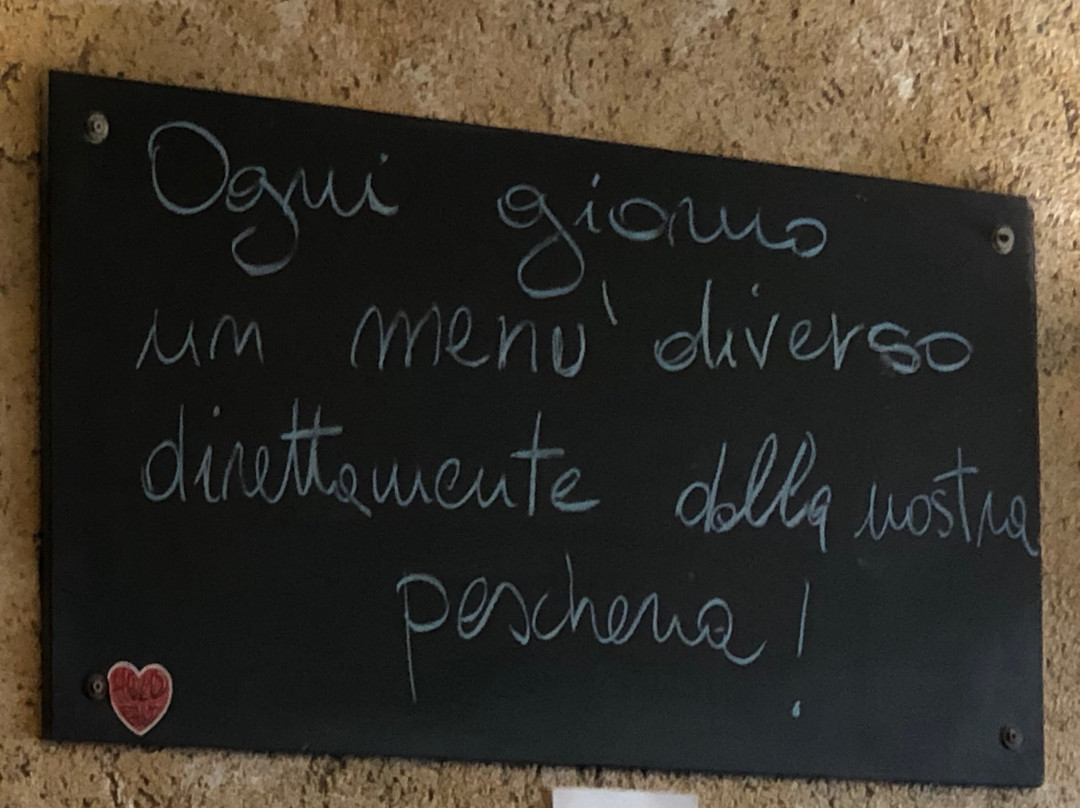 Ogni giorno
un menu' diverso
direttamente dalla nostra
pescheria!